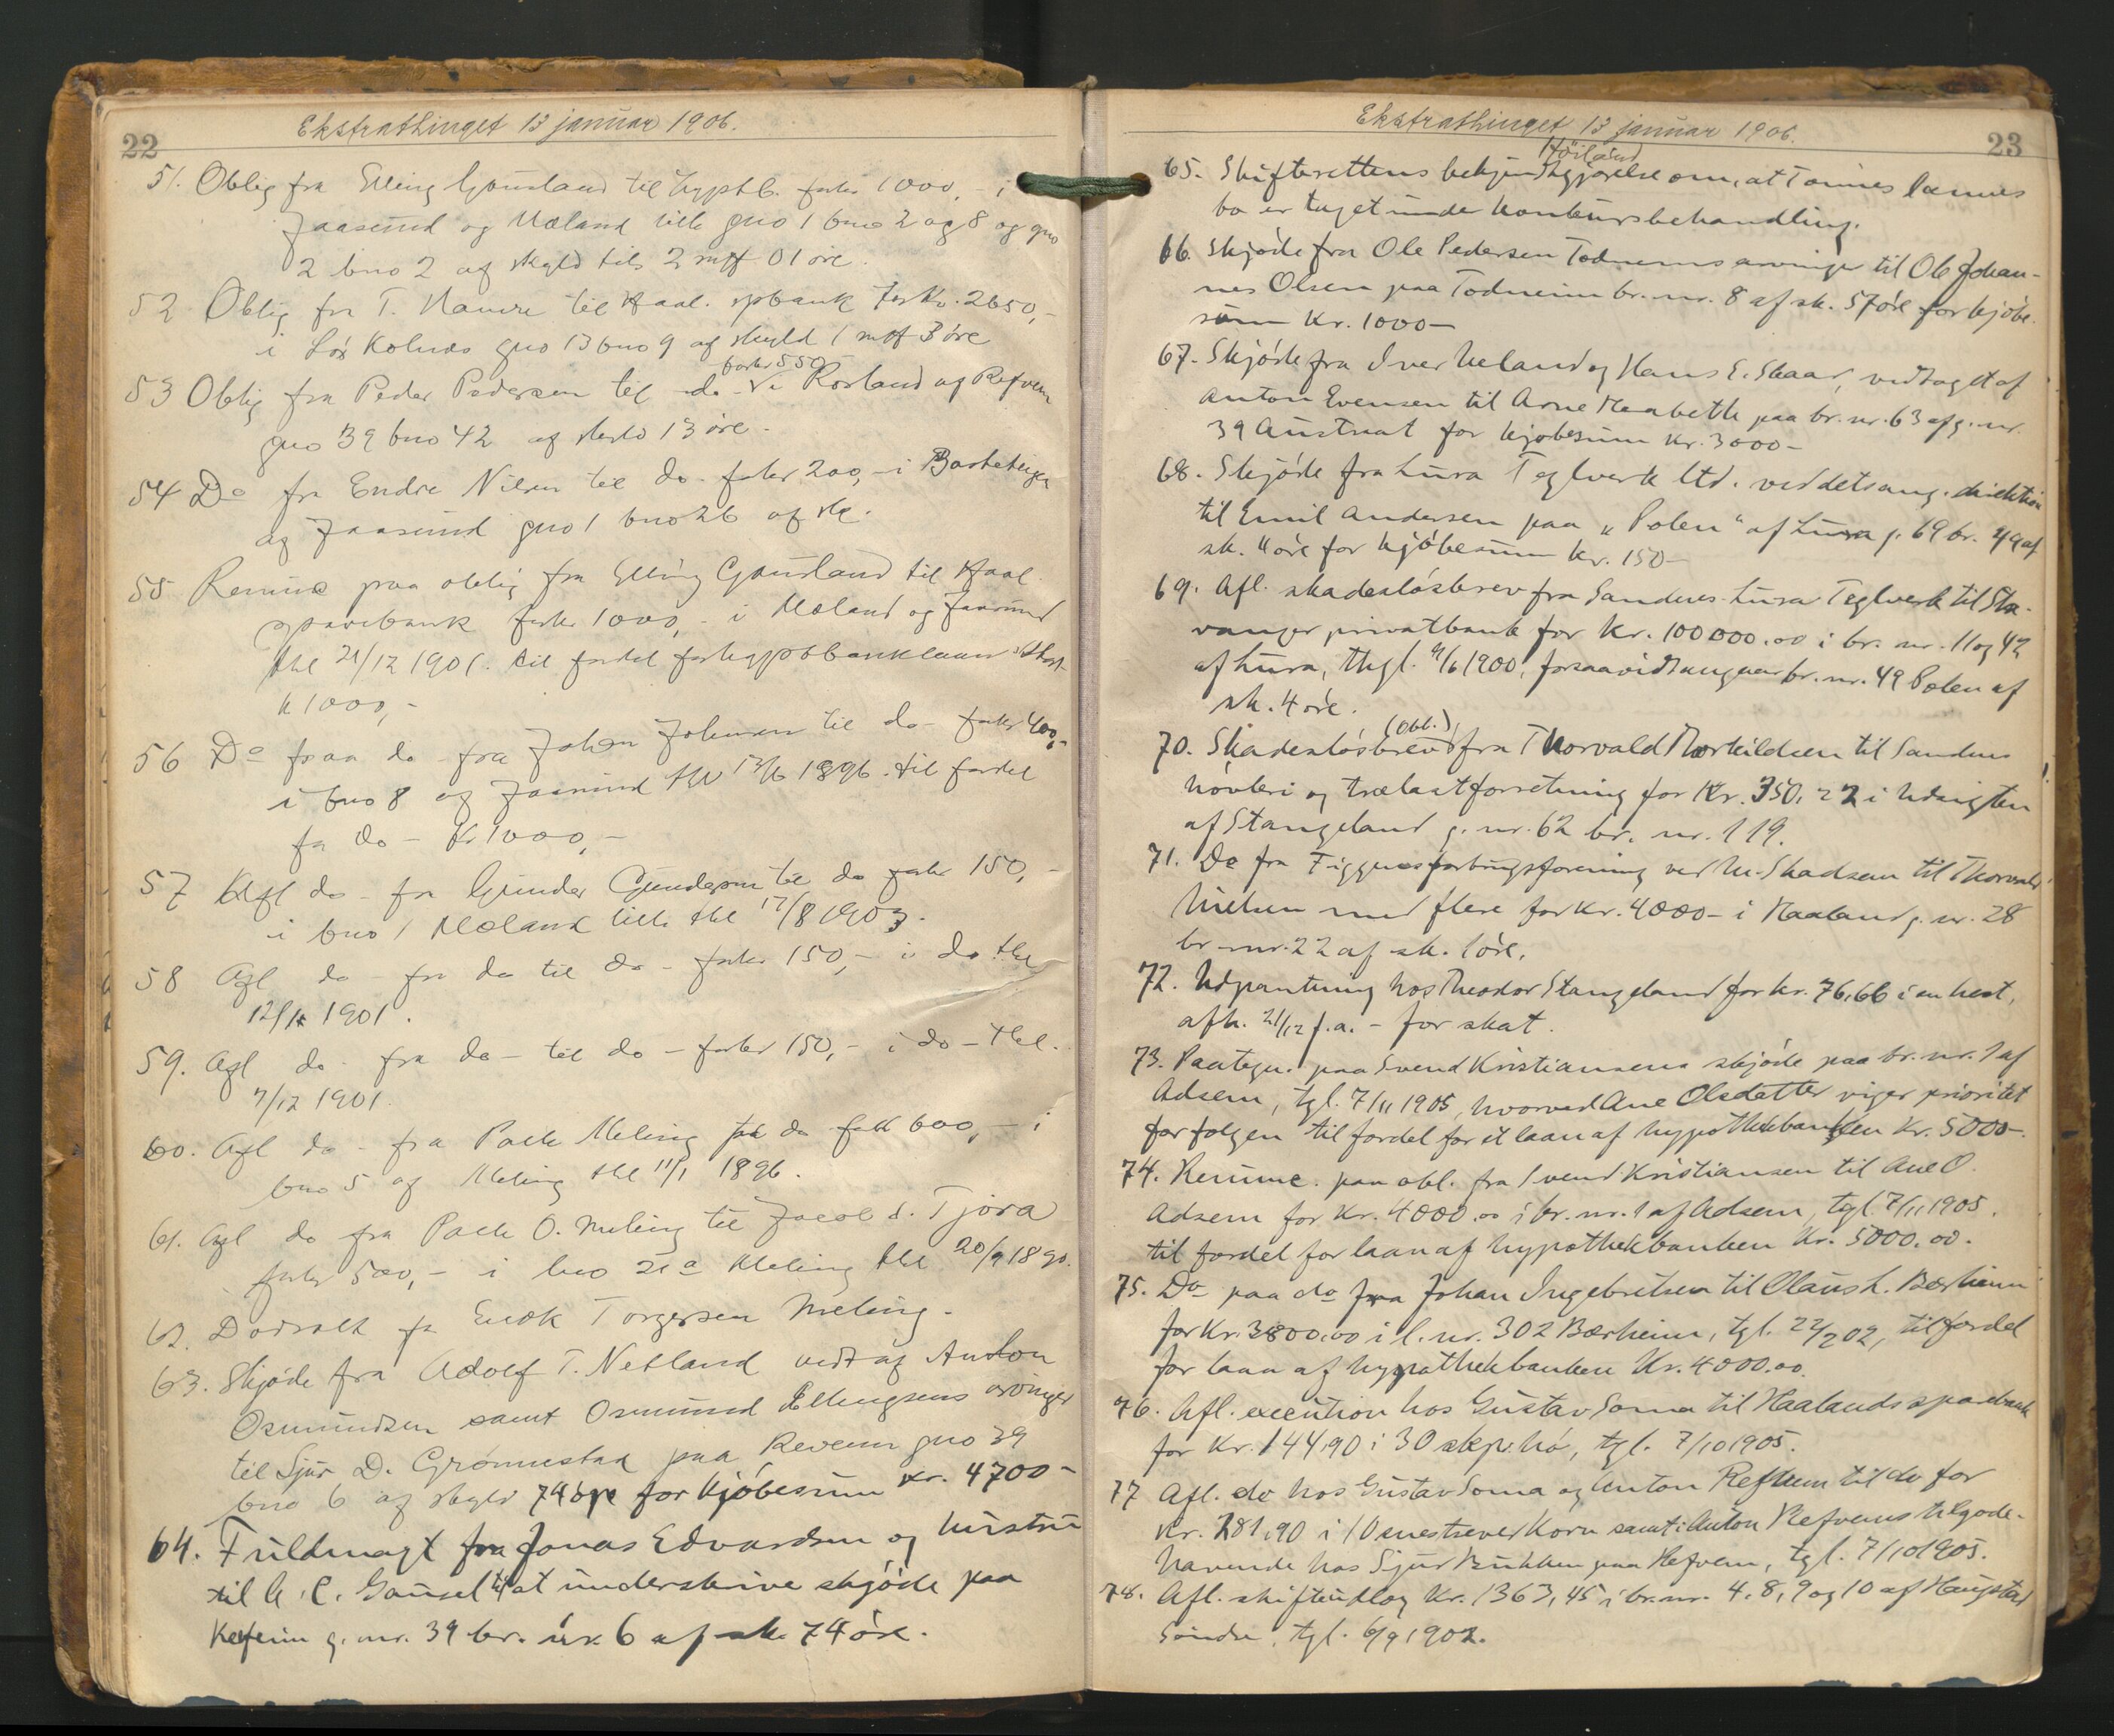 22
Ekstrathinget 13 januar 1906.
51. Oblig fra Elling Gousland til hyptb. forkr 1000,- i
Jaasund og Mæland lille gno 1 bno 2 og 8 og gno
2 bno 2 af skyld tils 2 mrk 01 øre.
52 Oblig fra T. Haavre til Haal. spbank for Kr. 2650,-
i Kolnæs gno 13 bno 9 af skyld 1 mrk 3 øre
53 Oblig fra Peder Pedersen til do forkr 550 i Rosland af Refvem
gno 39 bno 42 af skyld 13 øre.
54 Do fra Endre Nilsen til do. forkr 200,- i
af Jaasund gno 1 bno 26 af sk.
55 Renunc paa oblig fra Elling Gousland til Haal.
sparebank forkr 1000,- i Mæland og Jaasund
thl 21/12 1901. til fordel for hypobbanklaan
k 1000,-
56 Do paa do fra Johan Johnsen til do forkr 400,-
i bno 8 af Jaasund thl 13/6 1896. til fordel
for do - Kr 1000,-
57 Afl do- fra Gunder Gundersen til do forkr 150,-
i bno 1 Mæland lille thl 17/8 1903.
58 Afl do- fra do til do- forkr 150,- i do thl
12/ 1901.
59. Afl do- fra do- til do- forkr 150,- i do- thl.
7/12 1901.
60. Afl do- fra Palle Meling til do forkr 600,- i
bno 5 af Meling thl 11/1 1896.
61. Afl do fra Palle O. Meling til Jacob S. Tjora
forkr 500,- i bno 21a Meling thl 20/9 1890.
62. Dødsatt for Enok Torgersen Meling.
63. Skjøde fra Adolf T. Netland vedt af Anton
Osmundsen samt Osmund Ellingsens arvinger
til Sjur D. Grønnestad paa Revem gno 39
bno 6 af skyld 74 øre for kjøbesum kr. 4700-
64. Fuldmagt fra Jonas Edvardsen og hustru
til A. C. Gausel til at underskrive skjøde paa
Kefeim g. nr. 39 br. nr. 6 af sk. 74 øre.
23
Ekstrathinget 13 januar 1906.
Höiland
65. Skifterettens bekjendtgjørelse om, at Tønnes Lennes
bo er taget under konkursbehandling.
66. Skjøde fra Ole Pedersen Todnems arvinger til Ole Johan-
nes Olsen paa Todneim br. nr. 8 af sk. 57 øre for kjøbe-
sum Kr. 1000-
67. Skjøde fra Iver Ueland og Hans E. Skaar, vedtaget af
Anton Evensen til Arne Maabeth paa br. nr. 63 af g. nr.
39 Austraat for kjøbesum kr. 3000-
68. Skjøde fra Lura Teglverk ltd. ved dets ang. direktion
til Emil Andersen paa „Polen“ af Lura g. 69 br. 49 af
sk. 4 øre for kjøbesum kr. 150-
69. Afl. skadesløsbrev fra Sandnes Lura Teglverk til Sta-
vanger privatbank for Kr. 100000.00 i br. nr. 11 og 42
af Lura, thgl. 9/6 1900, forsaavidt angaar br. nr. 49 Polen af
sk. 4 øre.
(Obl.)
70. Skadesløsbrev fra Thorvald Thorkildsen til Sandnes
høvleri og trælastforretning for Kr. 350,22 i Udsigten
af Stangeland g. nr. 62 br. nr. 119.
71. Do fra Figgenes forbrugsforening ved M. Skadsem til Thorvald
Nielsen med flere for Kr. 4000- i Haaland g. nr. 28
br. nr. 22 af sk. 1 øre.
72. Udpantning hos Theodor Stangeland for kr. 76,66 i en hest,
afh. 21/12 f.a. - for skat.
73. Paategn. paa Svend Kristiansens skjøde paa br. nr. 1 af
Adsem, tgl. 7/11 1905, hvorved Ane Olsdatter viger prioritet
for følgen til fordel for et laan af hypothekbanken Kr. 5000-.
74. Renunc. paa obl. fra Svend Kristiansen til Ane O.
Adsem for Kr. 4000.00 i br. nr. 1 af Adsem, tgl. 7/11 1905.
til fordel for laan af hypothekbanken Kr. 5000.00.
75. Do paa do fra Johan Ingebretsen til Olaus L. Bærheim
for Kr. 3800.00 i l. nr. 302 Bærheim, tgl. 22/2 02, til fordel
for laan af hypothekbanken Kr. 4000.00.
76. Afl. execution hos Gustav Soma til Haalands sparebank
for Kr. 144,90 i 30 skp. hø, tgl. 7/10 1905.
77 Afl. do hos Gustav Soma og Anton Refheim til do for
Kr. 281,90 i 10 mestrever Korn samt i Anton Refvems tilgode-
havende hos Sjur Bukken paa Refvem, tgl. 7/10 1905.
78. Afl. skifteudlæg Kr. 1363,45 i br. nr. 4, 8, 9 og 10 af Haugstad
Søndre, tgl. 6/9 1902.